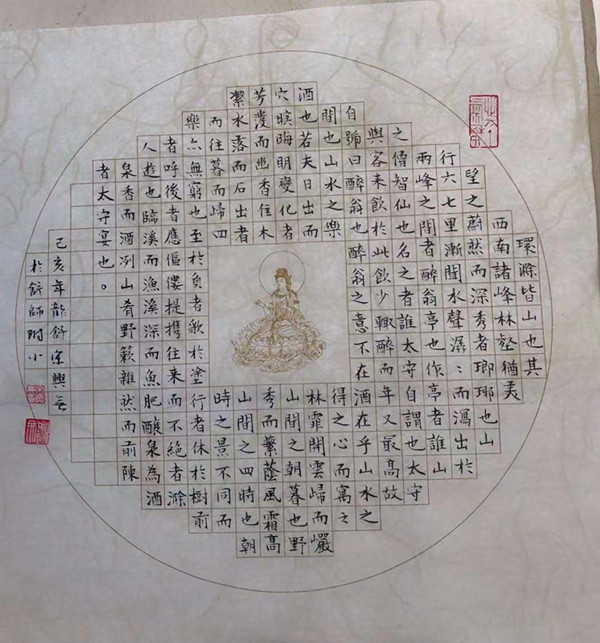 環滁皆山也其
西南諸峰林壑猶美
望之蔚然而深秀者瑯琊也山
行六七里漸聞水聲潺：而瀉出於
兩峰之間者醉翁亭也作亭者誰山
之僧智仙也名之者誰太守自謂也太守
與客來飲於此飲少輒醉而年又最高故
自號曰醉翁也醉翁之意不在酒在乎山水之
間也山水之樂得之心而寓之
酒也若夫日出而林霏開雲歸而巖
穴暝晦明變化者山間之朝暮也野
芳發而幽香佳木秀而繁蔭風霜高
潔水落而石出者山間之四時也朝
而往暮而歸四時之景不同而
樂亦無窮也至於負者歌於塗行者休於樹前
者呼後者應傴僂提攜往來而不絕者滁
人遊也臨溪而漁溪深而魚肥釀泉為酒
泉香而酒冽山肴野蔌雜然而前陳
者太守宴也。
己亥年龍舒宋興無
於舒師附小